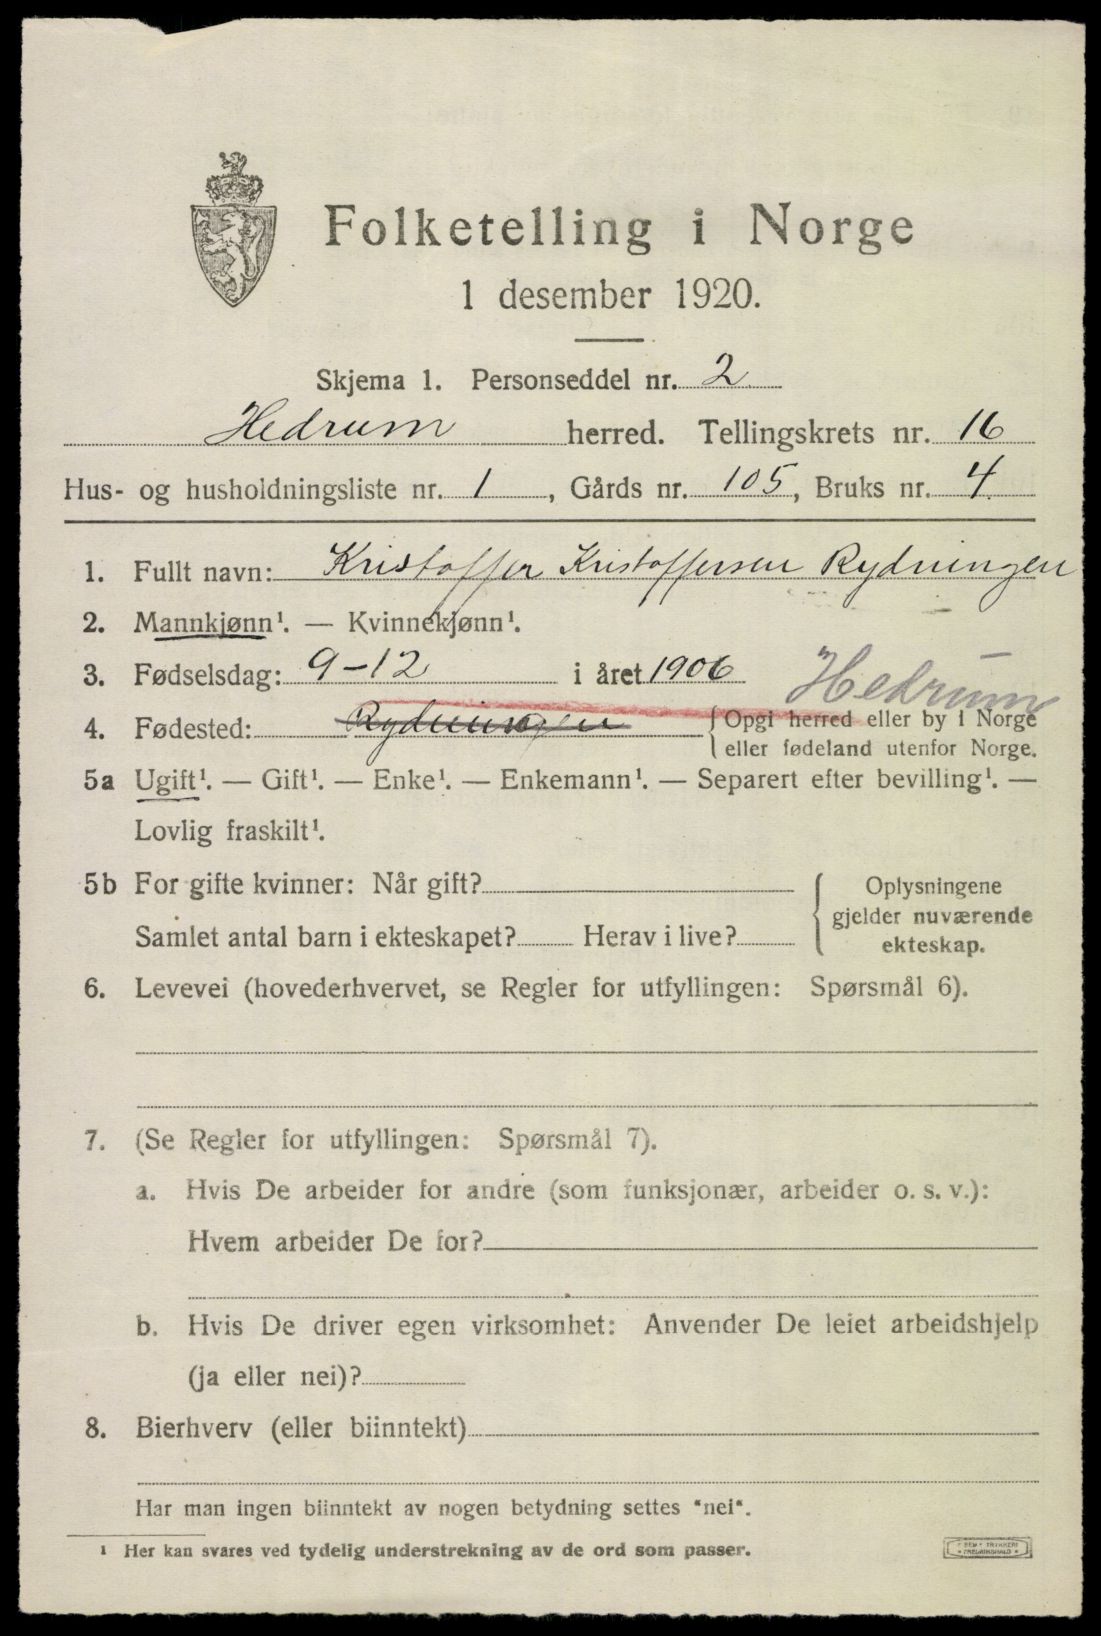 Folketelling i Norge
1 desember 1920.
Skjema 1. Personseddel nr. 2
Hedrum herred. Tellingskrets nr. 16
Hus- og husholdningsliste nr. 1, Gårds nr. 105, Bruks nr. 4
1. Fullt navn: Kristoffer Kristoffersen Rydningen
2. Mannkjønn¹. — Kvinnekjønn¹.
3. Fødselsdag: 9-12 i året 1906 Hedrum
4. Fødested: Rydningen { Opgi herred eller by i Norge
eller fødeland utenfor Norge.
5a Ugift¹. — Gift¹. — Enke¹. — Enkemann¹. — Separert efter bevilling¹. —
Lovlig fraskilt¹.
5b For gifte kvinner: Når gift? { Oplysningene
gjelder nuværende
Samlet antal barn i ekteskapet? Herav i live? ekteskap.
6. Levevei (hovederhvervet, se Regler for utfyllingen: Spørsmål 6).
7. (Se Regler for utfyllingen: Spørsmål 7).
a. Hvis De arbeider for andre (som funksjonær, arbeider o. s. v.):
Hvem arbeider De for?
b. Hvis De driver egen virksomhet: Anvender De leiet arbeidshjelp
(ja eller nei)?
8. Bierhverv (eller biinntekt)
Har man ingen biinntekt av nogen betydning settes "nei".
¹ Her kan svares ved tydelig understrekning av de ord som passer.